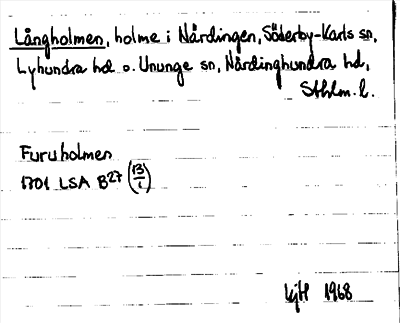 Långholmen, holme i Närdingen, Söderby-Karls sn,
Lyhundra hd o. Ununge sn, Närdinghundra hd,
Sthlm. l.
Furuholmen
1701 LSA B27 (13/1)
1968